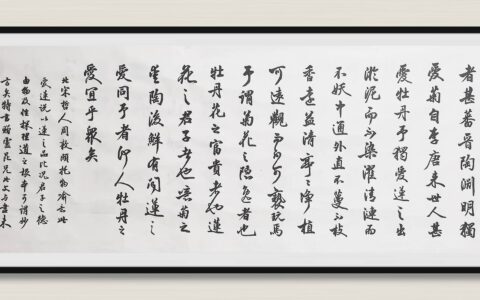 者甚蕃晉陶淵明獨
愛菊自李唐来世人甚
愛牡丹予獨愛蓮之出
淤泥而不染濯清漣而
不妖中通外直不蔓不枝
香遠益清亭亭淨植
可遠觀而不可褻玩焉
予謂菊花之隱逸者也
牡丹花之富貴者也蓮
花之君子者也噫菊之
愛陶後鮮有聞蓮之
愛同予者何人牡丹之
愛宜乎衆矣
北宋哲人周敦頤托物喻志此
愛蓮説以蓮之品比況君子之德
由物及性探理道之根本可謂妙
言矣特書贈雲飛兄此文